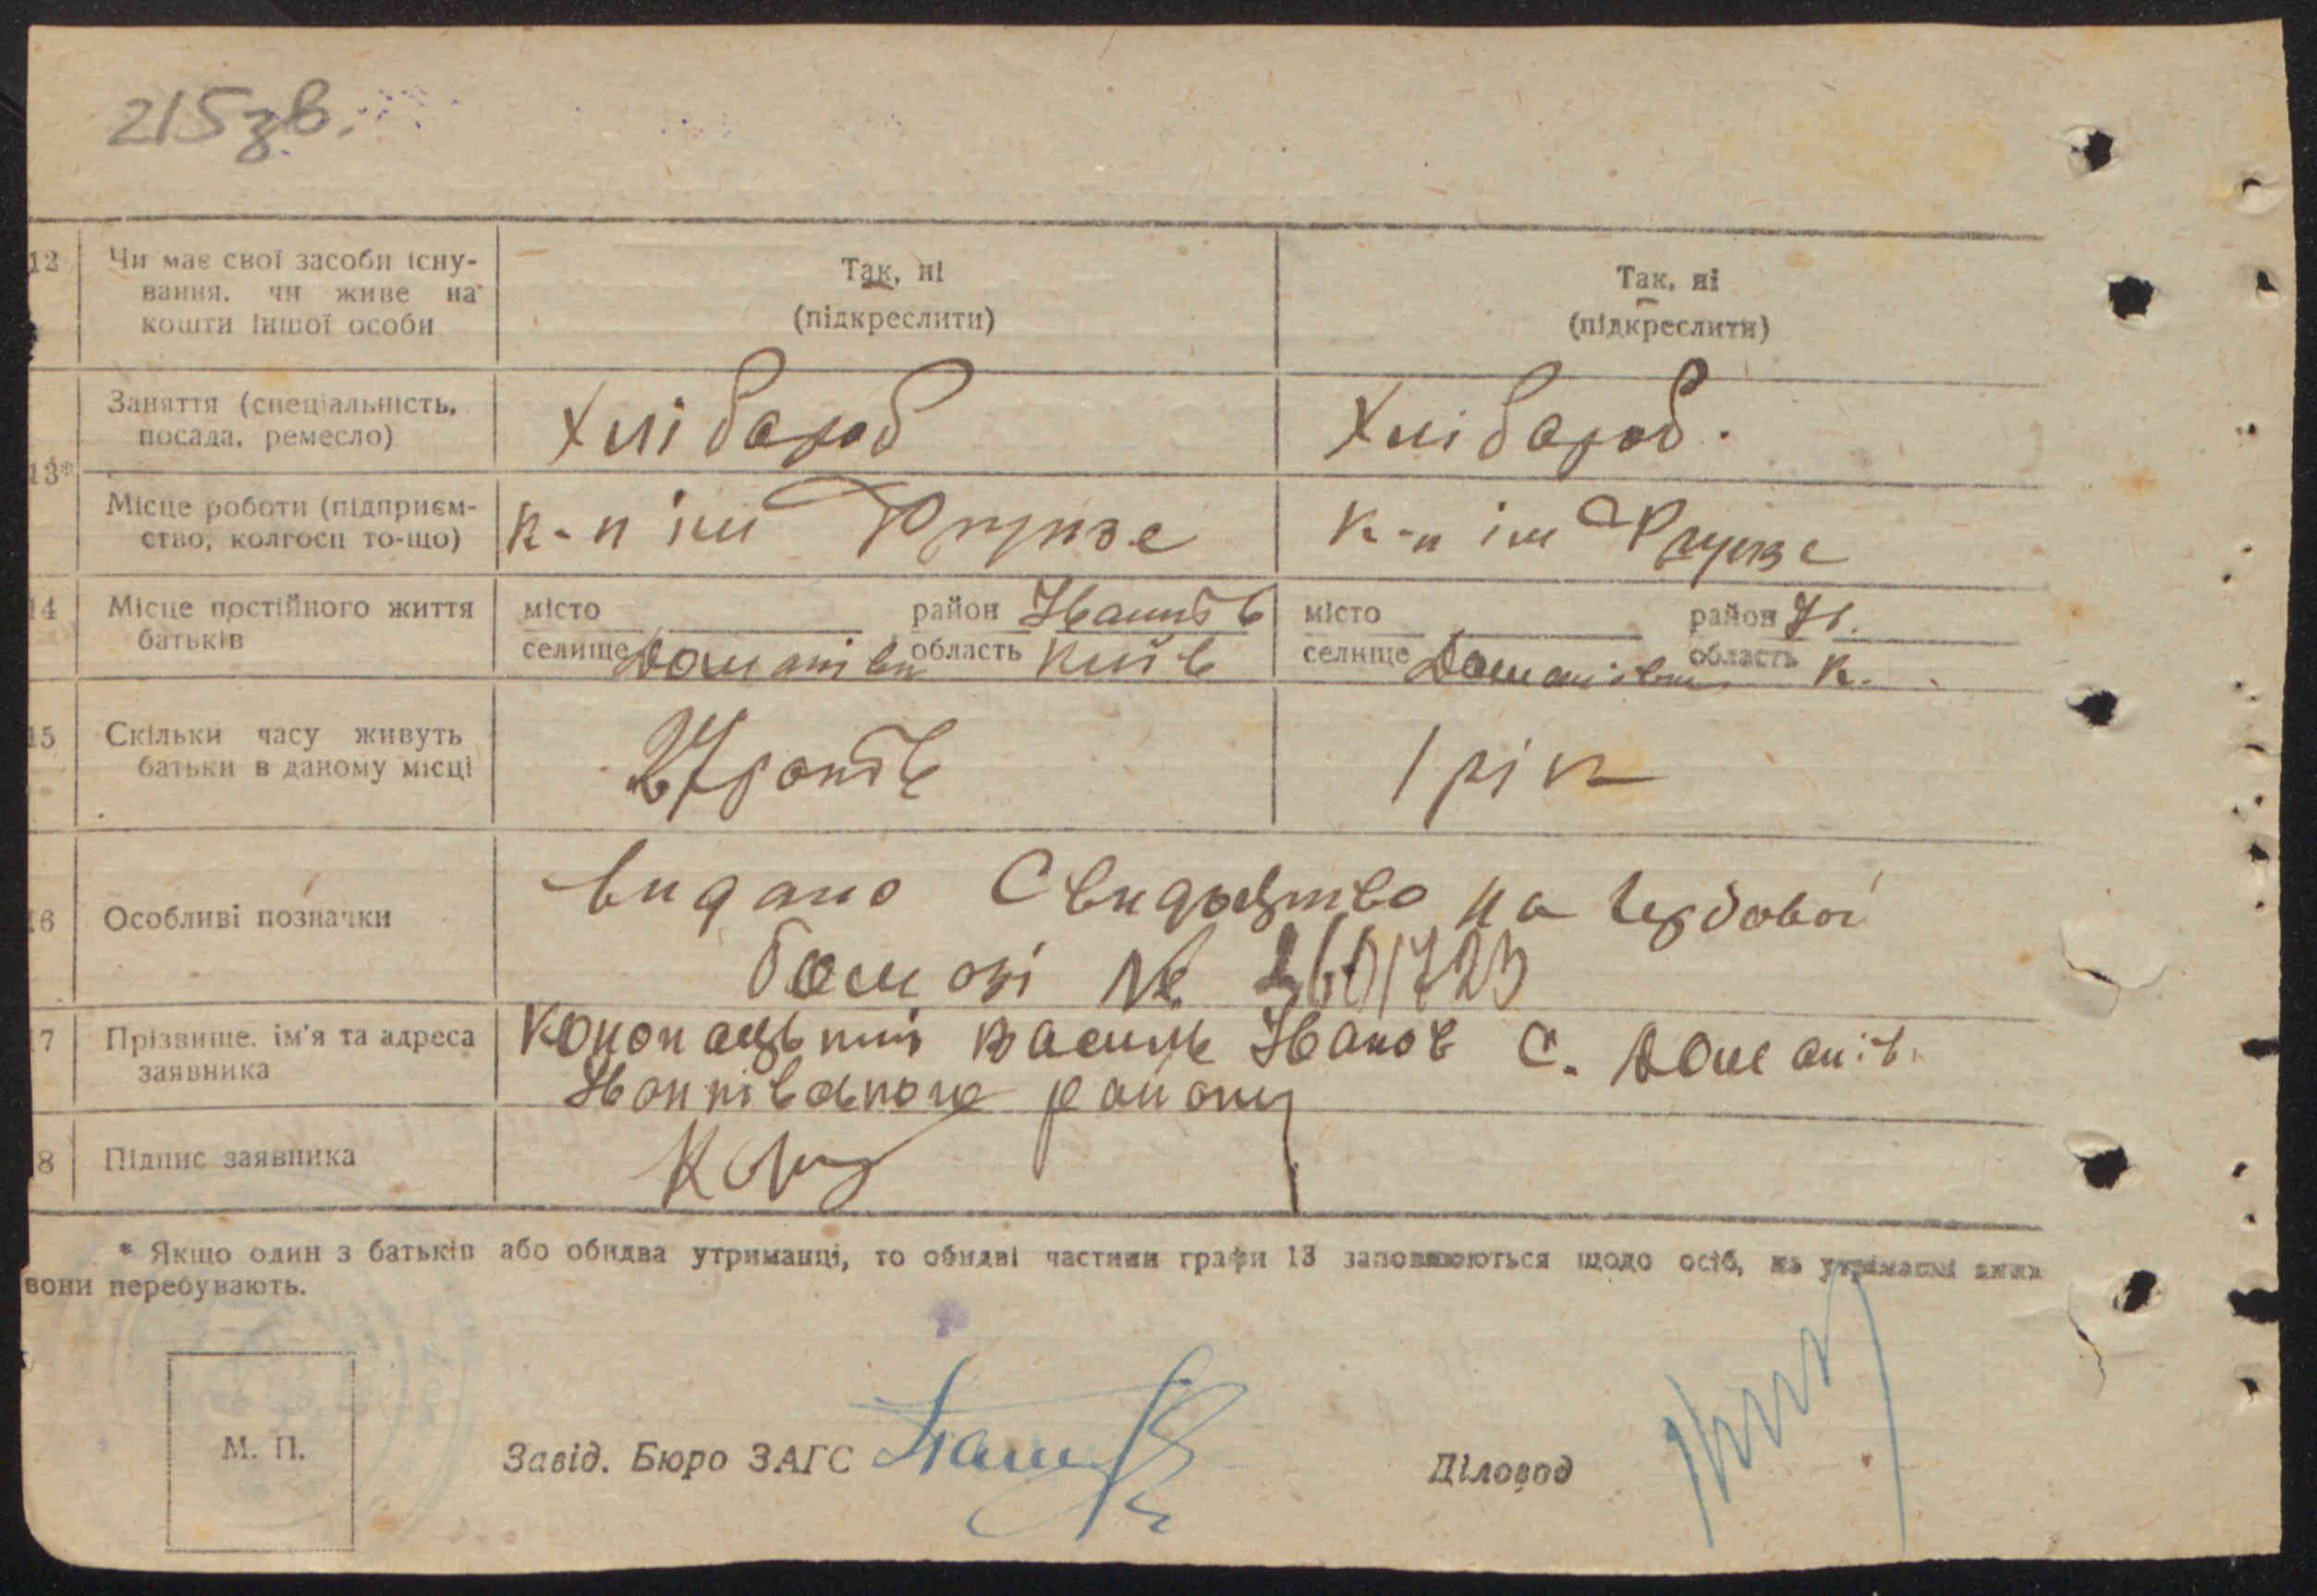 215 зв.
12 Чи має свої засоби існу-
вання, чи живе на
кошти іншої особи
Так, ні
(підкреслити)
Так, ні
(підкреслити)
13* Заняття (спеціальність,
посада, ремесло)
Хлібароб
Хлібароб.
Місце роботи (підприєм-
ство, колгосп то-що)
к-п ім Фрунзе
к-п ім Фрунзе
14 Місце постійного життя
батьків
місто район Іванків
селище Доманівка область Київ
місто район Ів.
селище Доманівка область К.
15 Скільки часу живуть
батьки в даному місці
27 років
1 рік
16 Особливі позначки
видано Свидоцтво на гербової
бомозі №
17 Прізвище, ім'я та адреса
заявника
Василь Іванов с. Доманів.
Іванківського району
18 Підпис заявника
* Якщо один з батьків або обидва утриманці, то обидві частини графи 13 заповнюються щодо осіб, на утриманні яких
вони перебувають.
М. П.
Завід. Бюро ЗАГС
Діловод